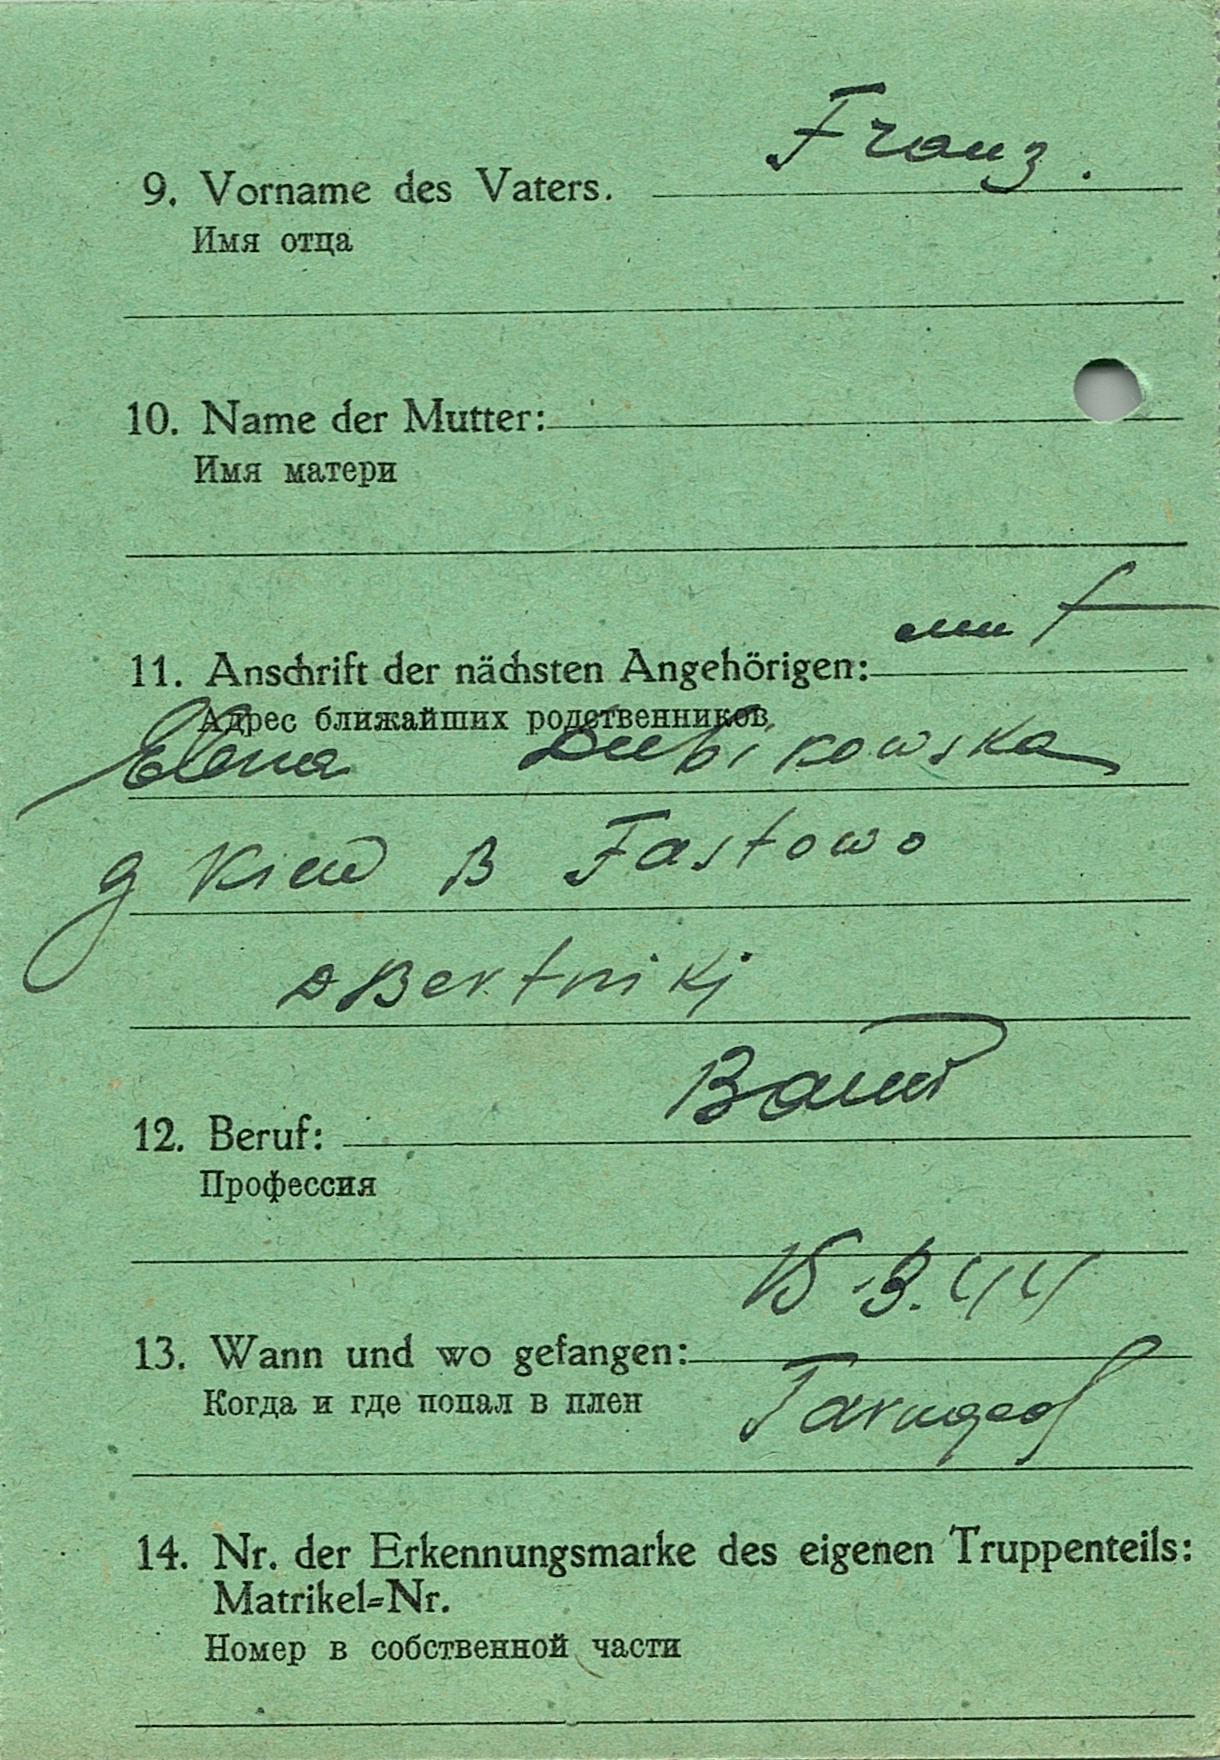 Franz.
9. Vorname des Vaters.
Имя отца
10. Name der Mutter:
Имя матери
11. Anschrift der nächsten Angehörigen:
Адрес ближайших родственников
Elena Dubikowska
g Kiew B Fastowo
12. Beruf:
Профессия
13. Wann und wo gefangen:
Когда и где попал в плен
14. Nr. der Erkennungsmarke des eigenen Truppenteils:
Matrikel=Nr.
Номер в собственной части